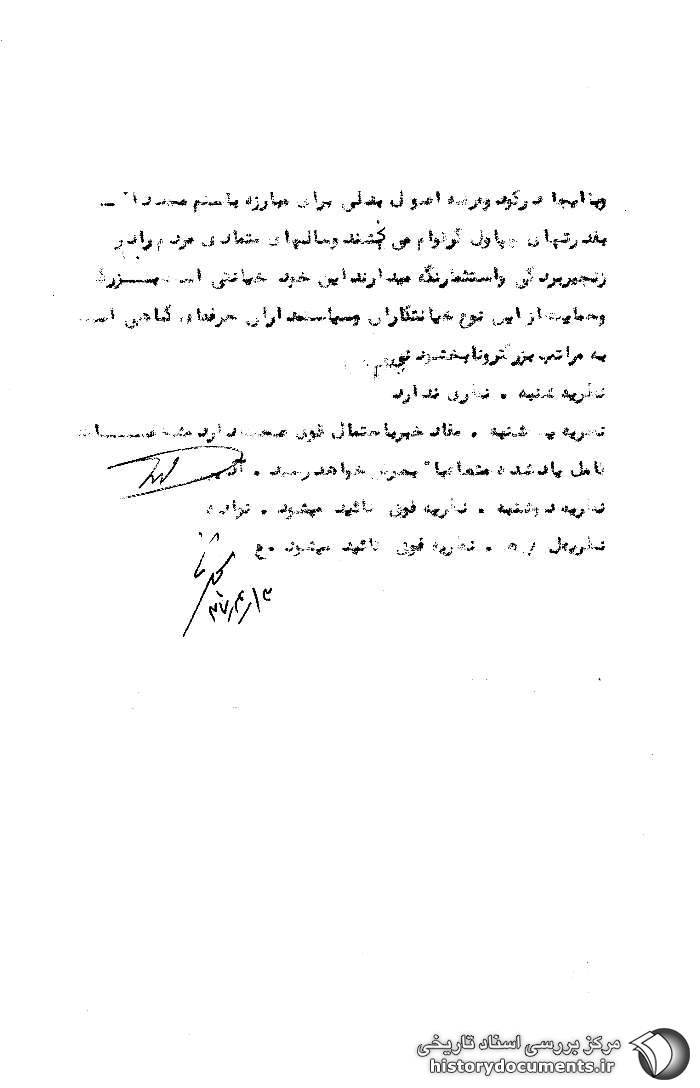 وبا ایجاد رکود وعرضه اصول بدلی برای مبارزه با ستم مجددا" ـ
بقدرتهای چپاولگر توام می کشند وسالهای متمادی مردم را در
زنجیر بردگی واستثمار نگه میدارند این خود خیانتی است بـــزرگ
وحمایت از این نوع خیانتکاران وسیاستمداران حرفه‌ای گناهی است
به مراتب بزرگتر ونابخشودنی
نظریه شنبه . نظری ندارد
نظریه یکشنبه . مفاد خبر با احتمال قوی صحت دارد مشخصـــات
کامل یاد شده متعاقبا" بعرض خواهد رسید .
نظریه دوشنبه . نظریه فوق تائید میشود .
. نظریه فوق تائید میشود . ع
۳۷/۴/۱۳
مرکز بررسی اسناد تاریخی
historydocuments.ir